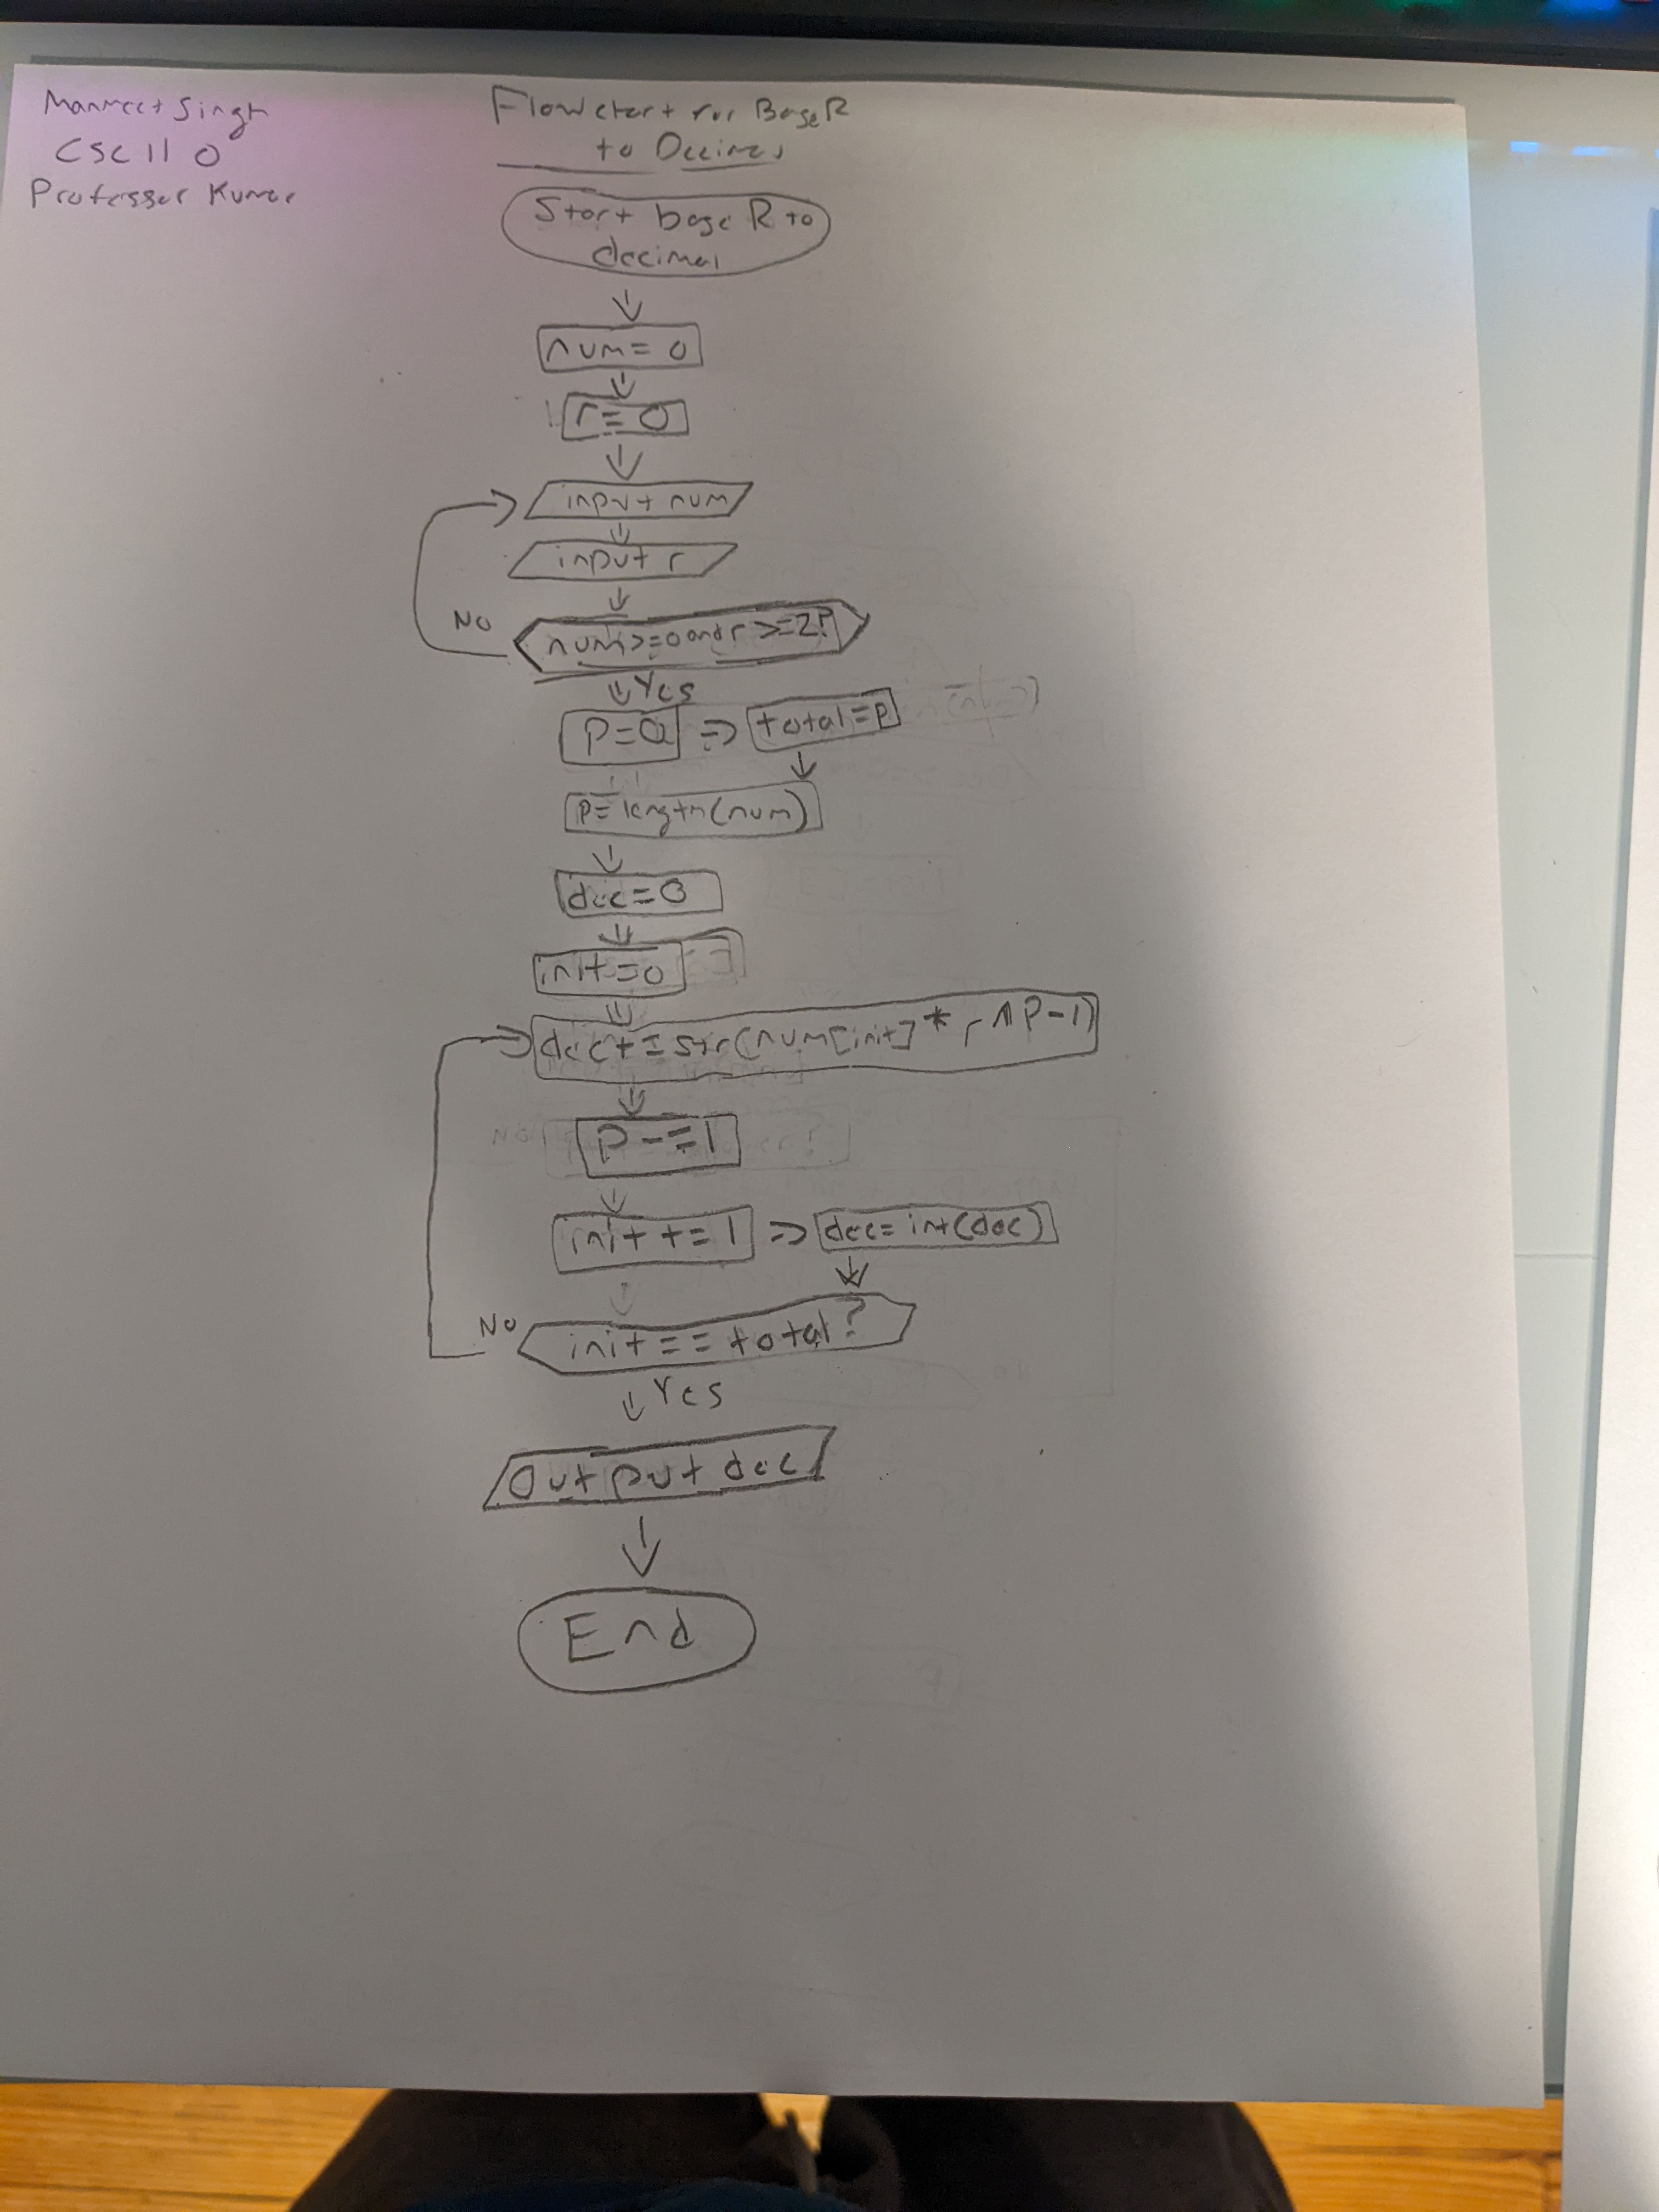 Manmeet Singh
CSC 110
Professor Kumar
Flowchart for Base R
to Decimal
Start base R to
decimal
num=0
r=0
input num
input r
num>=0 and r>=2?
No
Yes
P=0 => total=P
P=length(num)
dec=0
init=0
dec+=str(num[init]*r^P-1)
P-=1
init+=1 => dec=int(dec)
init==total?
No
Yes
Output dec
End